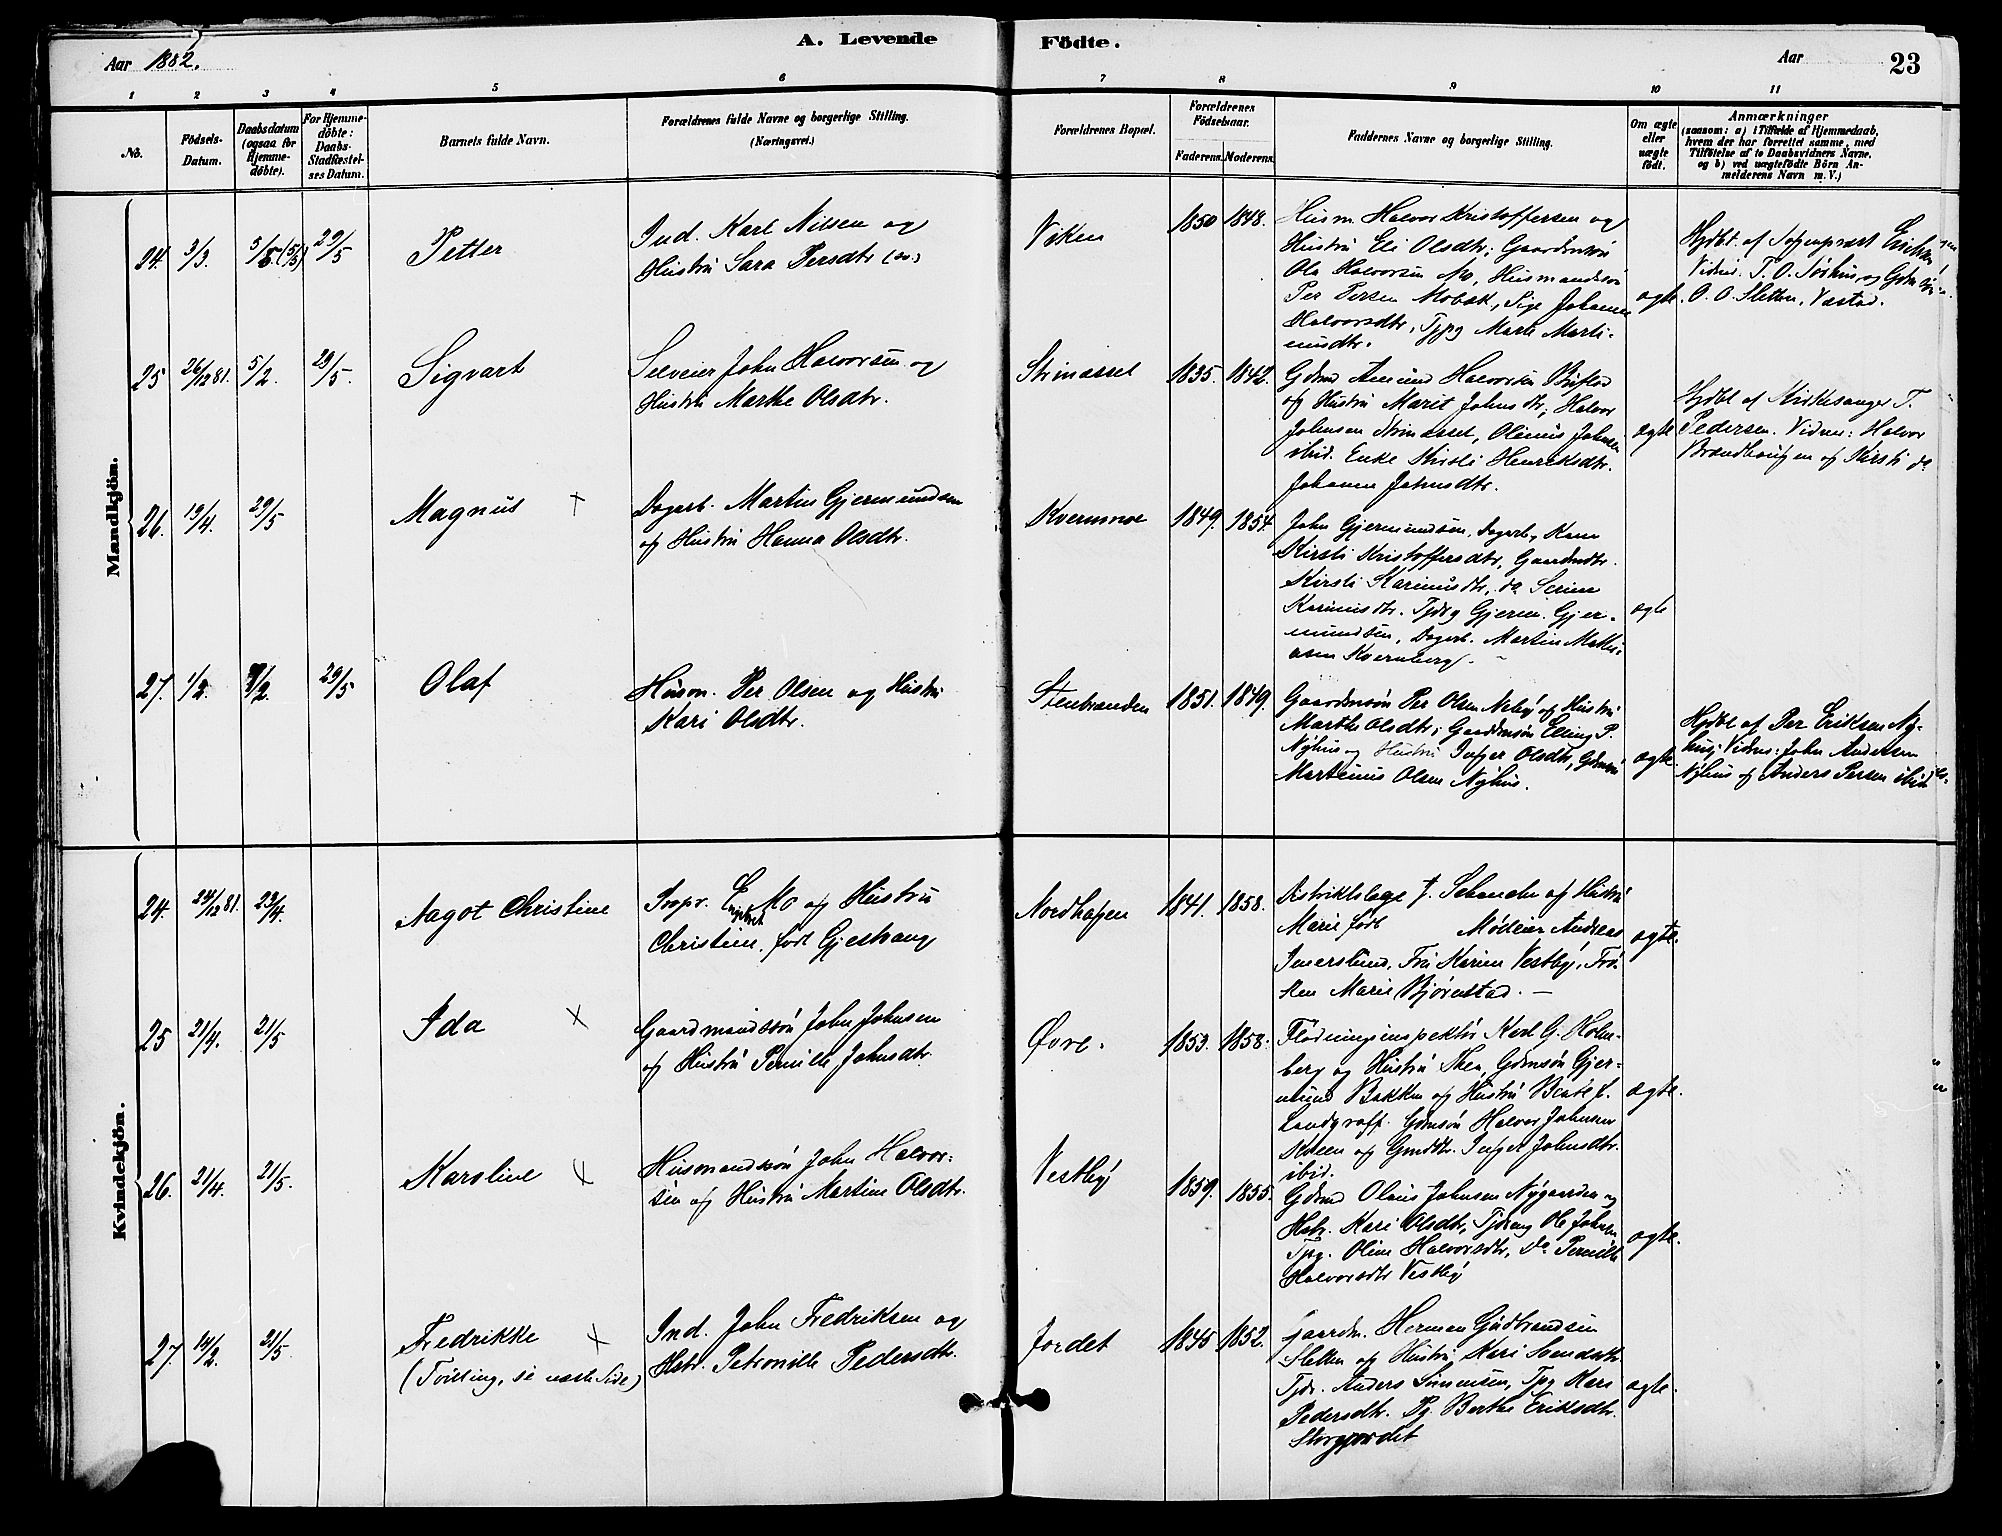 A. Levende Födte.
Aar 1882.
Aar
23
1 2 3 4 5 6 7 8 9 10 11
No.
Födsels-
Datum.
Daabsdatum
(ogsaa for
Hjemme-
döbte).
For Hjemme-
döbte:
Daabs-
Stadfæstel-
ses Datum.
Barnets fulde Navn.
Forældrenes fulde Navne og borgerlige Stilling.
(Næringsvei.)
Forældrenes Bopæl.
Forældrenes
Födselsaar.
Faderens. Moderens.
Faddernes Navne og borgerlige Stilling.
Om ægte
eller
uægte
födt.
Anmærkninger
(saasom: a) i Tilfælde af Hjemmedaab,
hvem der har forrettet samme, med
Tilföielse af to Daabsvidners Navne,
og b) ved uægtefödte Börn An-
melderens Navn m. V.)
Mandkjön.
24. 3/3. 5/5 (5/3) 29/5
Petter
Ind. Karl Nilsen og
Hustru Sara Persdtr
Viken
1850 1848.
Husm. Halvor Kristoffersen og
Hustru Eli Olsdtr; Gaardmsøn
Ole Halvorsen Mo, Husmandssøn
Per Persen Mobæk, Pige Johanne
Halvorsdtr, Tjpg Marte Marti-
nusdtr.
ægte.
Hjdbt. af Sognepræst Eriksen
Vidner. T. O. Sørhus og Gdmsøn
O. O. Sletten, Væstad.
25 26/12 81. 5/2. 29/5.
Sigvart
Selveier John Halvorsen og
Hustru Marthe Olsdtr.
Strinæsset
1835. 1842.
Gdmd Amund Halvorsen
og Hustru Marit Johnsdtr; Halvor
Johnsen Strinæsset, Olinus Johnsen
ibid. Enke Kirsti Henriksdtr.
Johanne Johnsdtr.
ægte
Hjdbt af Kirkesanger T.
Pedersen. Vidner: Halvor
Brændhaugen og Kirsti do
26. 19/4. 29/5
Magnus +
Dagarb. Martin Gjermundsen
og Hustru Hanna Olsdtr.
Kvernmoe
1849. 1854.
John Gjermundsen, Dagarb, Kone
Kirsti Kristoffersdtr, Gaardmdtr.
Kirsti Karinusdtr, do Serine
Karinusdtr. Tjdrg Gjerm. Gjer-
mundsen, Dagarb. Martin Mathi-
asen Kvernberg.
ægte
27. 1/2. 7/2 29/5
Olaf
Husm. Per Olsen og Hustru
Kari Olsdtr.
Stenbranden
1851. 1849.
Gaardmsøn Per Olsen Neby og Hustru
Marthe Olsdtr; Gaardmsøn Elling P.
Nyhus og Hustru Inger Olsdtr, Gdmsøn
Martinus Olsen Nyhus.
ægte
Hjdbt af Per Eriksen Ny-
hus; Vidner: John Andersen
Nyhus og Anders Persen ibid
Kvindekjön.
24. 29/12 81. 23/4.
Aagot Christine
Propr. E Mo og Hustru
Christine Engebret født Gjestvang
Nordhagen
1841. 1858.
Distriktslæge J. Schancke og Hustru
Marie født Mækleier Andreas
Imerslund, Fru Karen Vestby, Frø-
ken Marie Bjørnstad.
ægte.
25 21/4. 21/5
Ida ×
Gaardmandssøn John Johnsen
og Hustru Pernille Johnsdtr.
Øvre.
1853. 1858.
Flødningsinspektør Karl G. Holm-
berg og Hustru Thea, Gdmsøn Gjer-
mund Bakken og Hustru Beate f.
Landgraff. Gdmsøn Halvor Johnsen
og Gmddtr. Inger Johnsdtr.
ibid.
ægte.
26. 21/4. 21/5.
Karoline ×
Husmandssøn John Halvor-
sen og Hustru Martine Olsdtr.
Vestby
1859. 1855.
Gdmd Olaus Johnsen Nygaarden og
Hstr. Kari Olsdtr, Tjdreng Ole Johnsen
Tjpg. Oline Halvorsdtr, Do Pernille
Halvorsdtr Vestby
ægte.
27. 14/2. 21/5.
Fredrikke ×
(Tvilling, se næste Side)
Ind. John Fredriksen og
Hstr. Petronille Pedersdtr.
Jordet
1845 1852.
Gaardm. Herman Gudbrandsen
Sletten og Hustru Kari Svendsdtr
Tjdr. Anders Simensen, Tpg Kari
Pedersdtr. Pg. Berthe Eriksdtr.
Storjordet
ægte.